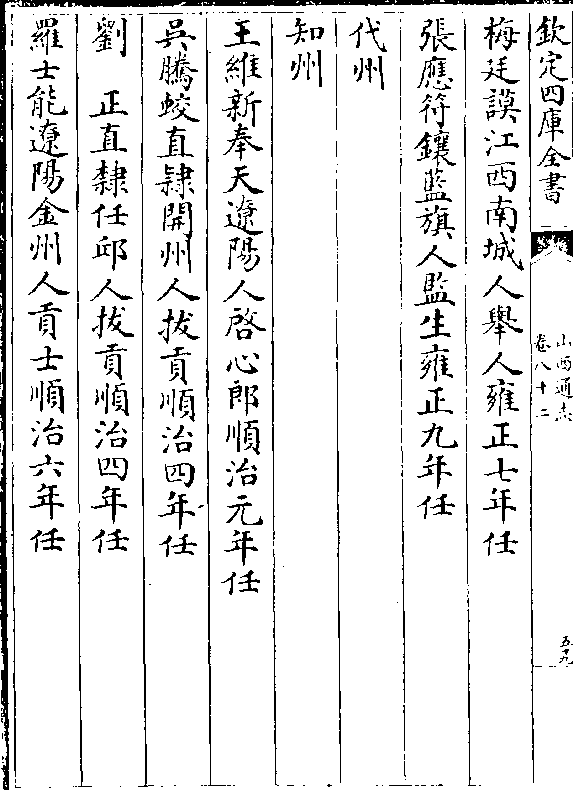 欽定四庫全書
山西通志
卷八十二
五十九
梅廷謨江西南城人舉人雍正七年任
張應符鑲藍旗人監生雍正九年任
代州
知州
王維新奉天遼陽人啓心郎順治元年任
吳騰蛟直隸開州人拔貢順治四年任
劉　正直隸任邱人拔貢順治四年任
羅士能遼陽金州人貢士順治六年任